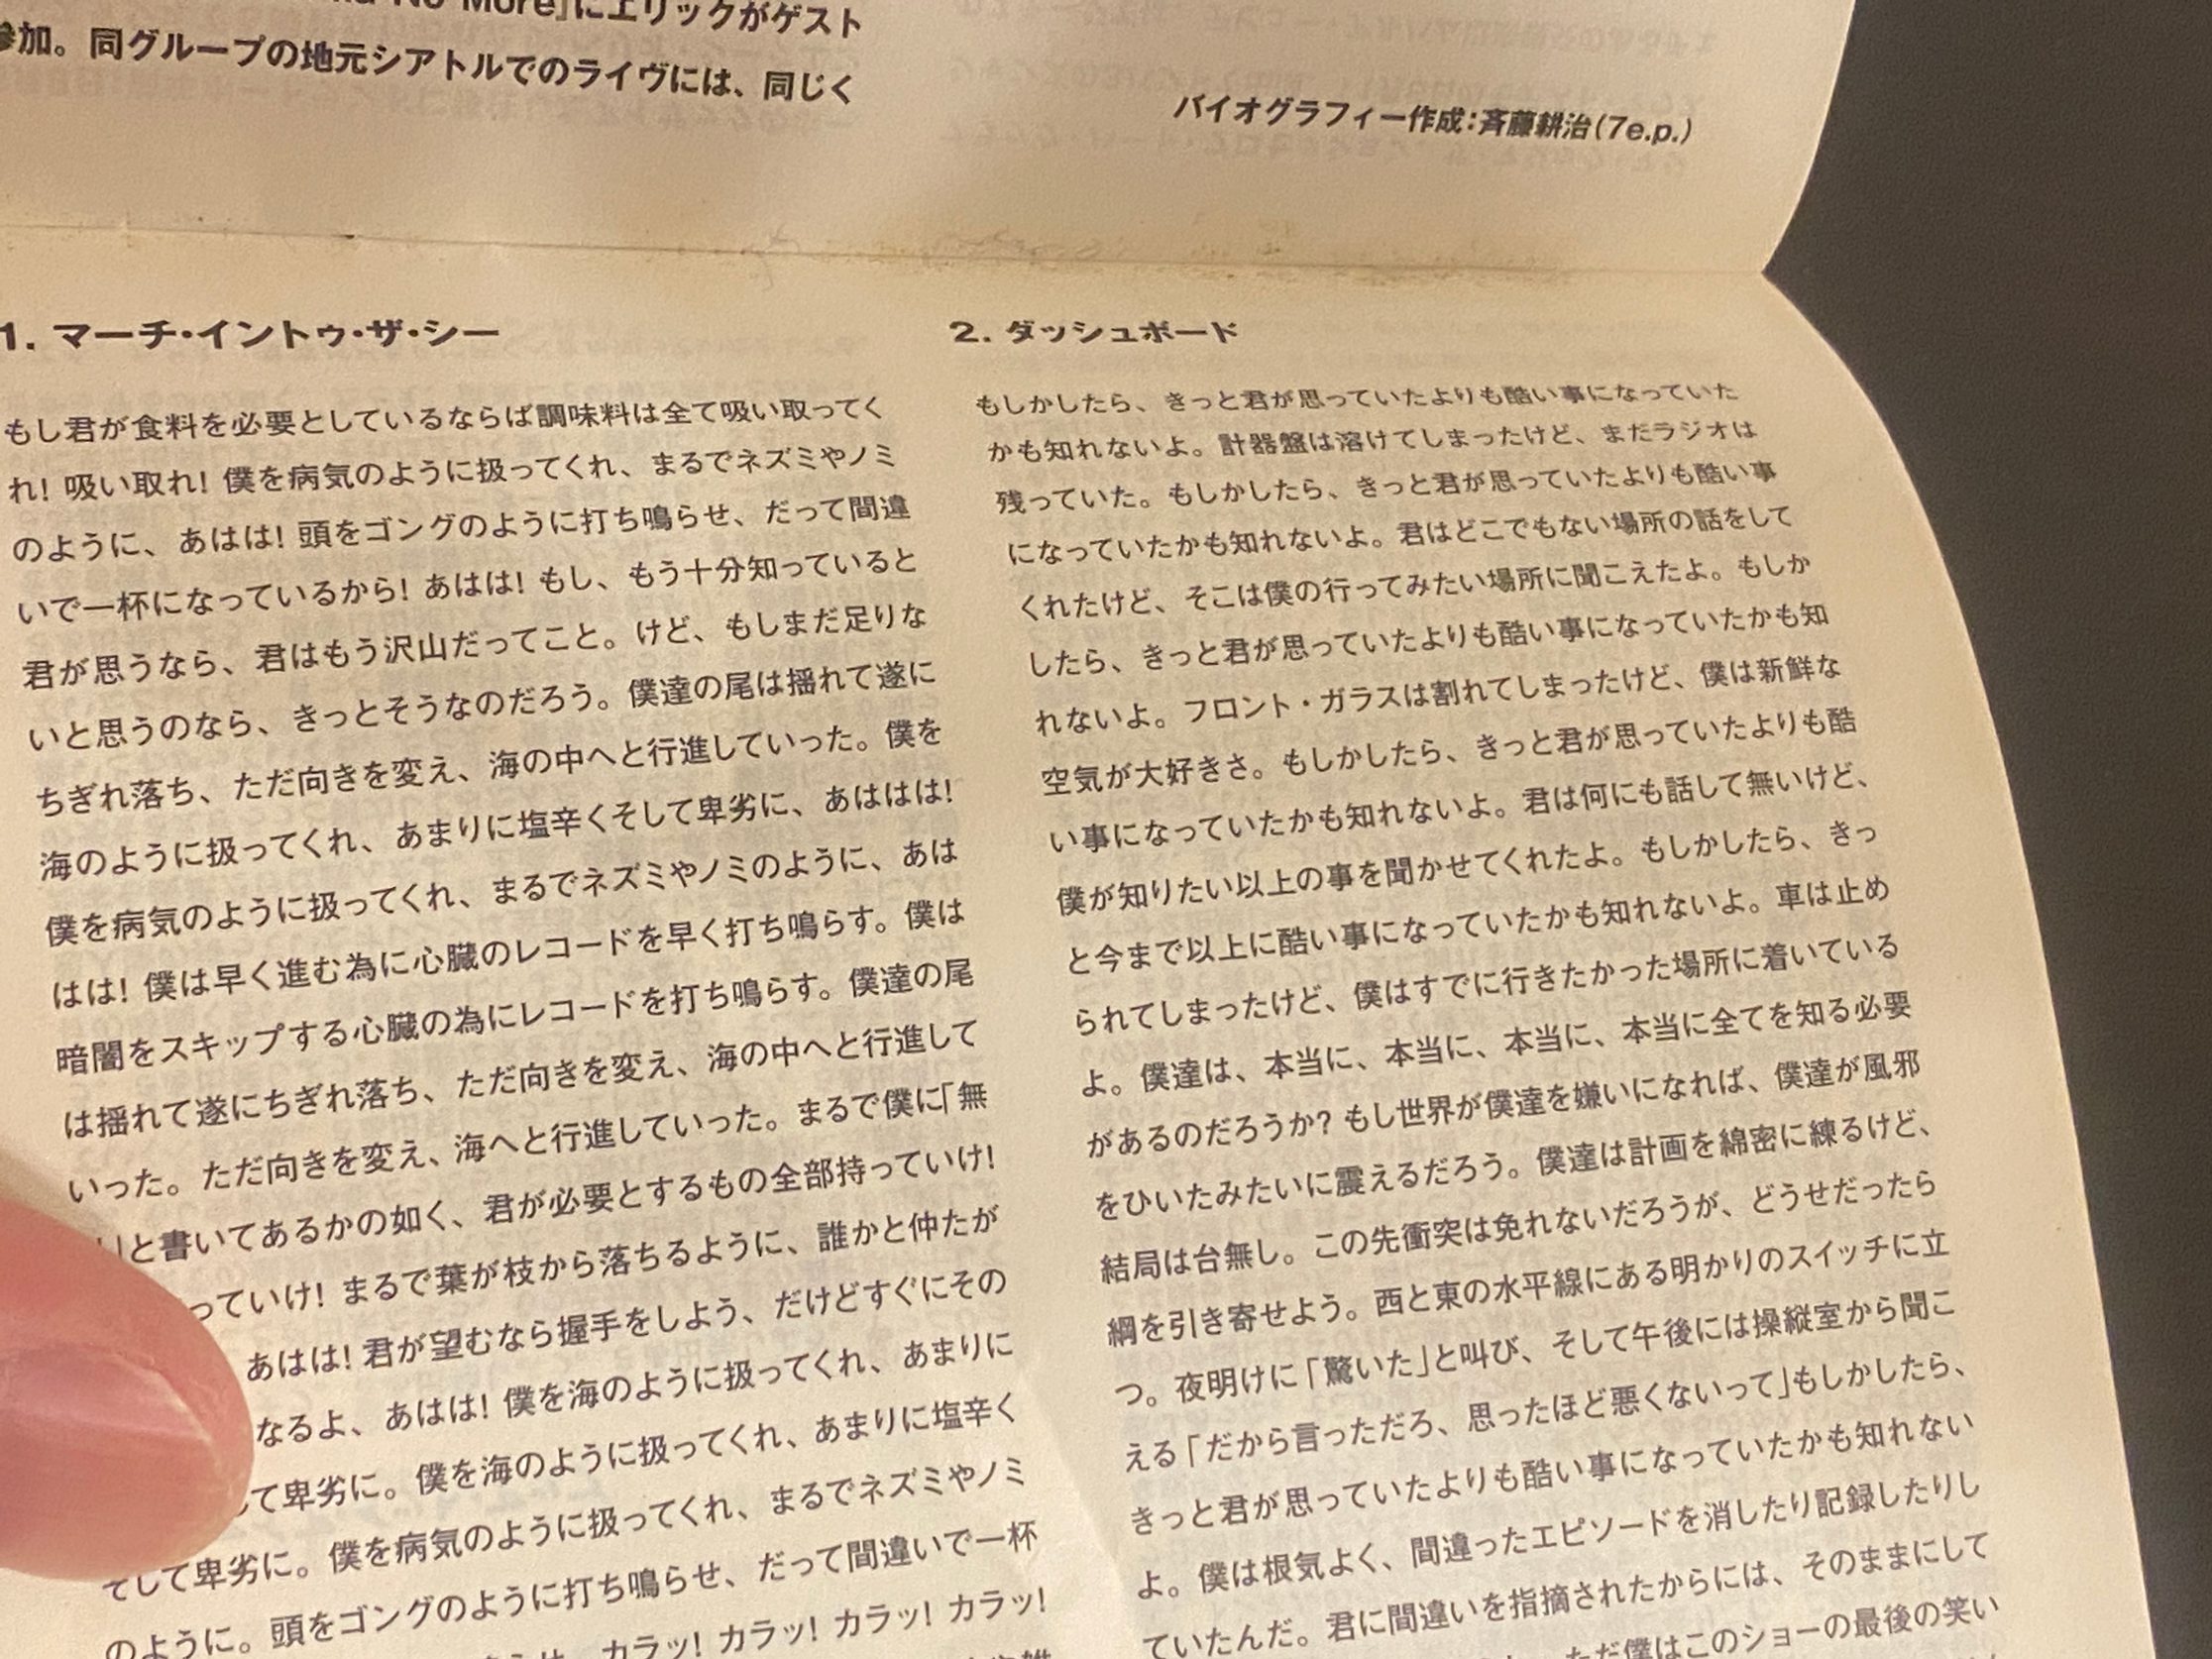 No More』にエリックがゲスト
参加。同グループの地元シアトルでのライヴには、同じく
バイオグラフィー作成：斉藤耕治（7e.p.）
1. マーチ・イントゥ・ザ・シー
もし君が食料を必要としているならば調味料は全て吸い取ってく
れ！ 吸い取れ！ 僕を病気のように扱ってくれ、まるでネズミやノミ
のように、あはは！ 頭をゴングのように打ち鳴らせ、だって間違
いで一杯になっているから！ あはは！ もし、もう十分知っていると
君が思うなら、君はもう沢山だってこと。けど、もしまだ足りな
いと思うのなら、きっとそうなのだろう。僕達の尾は揺れて遂に
ちぎれ落ち、ただ向きを変え、海の中へと行進していった。僕を
海のように扱ってくれ、あまりに塩辛くそして卑劣に、あははは！
僕を病気のように扱ってくれ、まるでネズミやノミのように、あは
はは！ 僕は早く進む為に心臓のレコードを早く打ち鳴らす。僕は
暗闇をスキップする心臓の為にレコードを打ち鳴らす。僕達の尾
は揺れて遂にちぎれ落ち、ただ向きを変え、海の中へと行進して
いった。ただ向きを変え、海へと行進していった。まるで僕に「無
」と書いてあるかの如く、君が必要とするもの全部持っていけ！
っていけ！ まるで葉が枝から落ちるように、誰かと仲たが
あはは！ 君が望むなら握手をしよう、だけどすぐにその
なるよ、あはは！ 僕を海のように扱ってくれ、あまりに
て卑劣に。僕を海のように扱ってくれ、あまりに塩辛く
そして卑劣に。僕を病気のように扱ってくれ、まるでネズミやノミ
のように。頭をゴングのように打ち鳴らせ、だって間違いで一杯
カラッ！ カラッ！ カラッ！ カラッ！
2. ダッシュボード
もしかしたら、きっと君が思っていたよりも酷い事になっていた
かも知れないよ。計器盤は溶けてしまったけど、まだラジオは
残っていた。もしかしたら、きっと君が思っていたよりも酷い事
になっていたかも知れないよ。君はどこでもない場所の話をして
くれたけど、そこは僕の行ってみたい場所に聞こえたよ。もしか
したら、きっと君が思っていたよりも酷い事になっていたかも知
れないよ。フロント・ガラスは割れてしまったけど、僕は新鮮な
空気が大好きさ。もしかしたら、きっと君が思っていたよりも酷
い事になっていたかも知れないよ。君は何にも話して無いけど、
僕が知りたい以上の事を聞かせてくれたよ。もしかしたら、きっ
と今まで以上に酷い事になっていたかも知れないよ。車は止め
られてしまったけど、僕はすでに行きたかった場所に着いている
よ。僕達は、本当に、本当に、本当に、本当に全てを知る必要
があるのだろうか？ もし世界が僕達を嫌いになれば、僕達が風邪
をひいたみたいに震えるだろう。僕達は計画を綿密に練るけど、
結局は台無し。この先衝突は免れないだろうが、どうせだったら
綱を引き寄せよう。西と東の水平線にある明かりのスイッチに立
つ。夜明けに「驚いた」と叫び、そして午後には操縦室から聞こ
える「だから言っただろ、思ったほど悪くないって」もしかしたら、
きっと君が思っていたよりも酷い事になっていたかも知れない
よ。僕は根気よく、間違ったエピソードを消したり記録したりし
ていたんだ。君に間違いを指摘されたからには、そのままにして
ただ僕はこのショーの最後の笑い